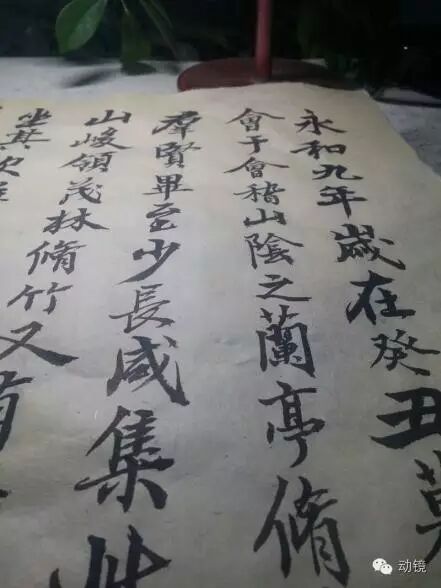 永和九年歲在癸丑莫
會于會稽山陰之蘭亭脩
羣賢畢至少長咸集此
山峻領茂林脩竹又有
坐其次
动镜